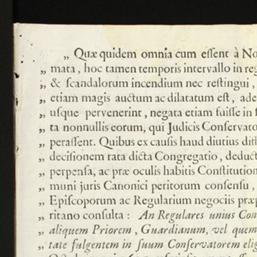 „ Quæ quidem omnia cum eſſent à No
„ mata, hoc tamen temporis intervallo in reg
„ & ſcandalorum incendium nec reſtingui,
„ etiam magis auctum ac dilatatum eſt, ade
„ uſque pervenerint, negata etiam fuiſſe in ſ
„ ta nonnullis eorum, qui Judicis Conſervato
„ peraſſent. Quibus ex cauſis haud diutius diff
„ deciſionem rata dicta Congregatio, deduct
„ perpenſa, ac præ oculis habitis Conſtitution
„ muni juris Canonici peritorum conſenſu,
„ Epiſcoporum ac Regularium negociis præp
„ ritano conſulta: An Regulares unius Con
„ aliquem Priorem, Guardianum, vel quem
„ tate fulgentem in ſuum Conſervatorem elig